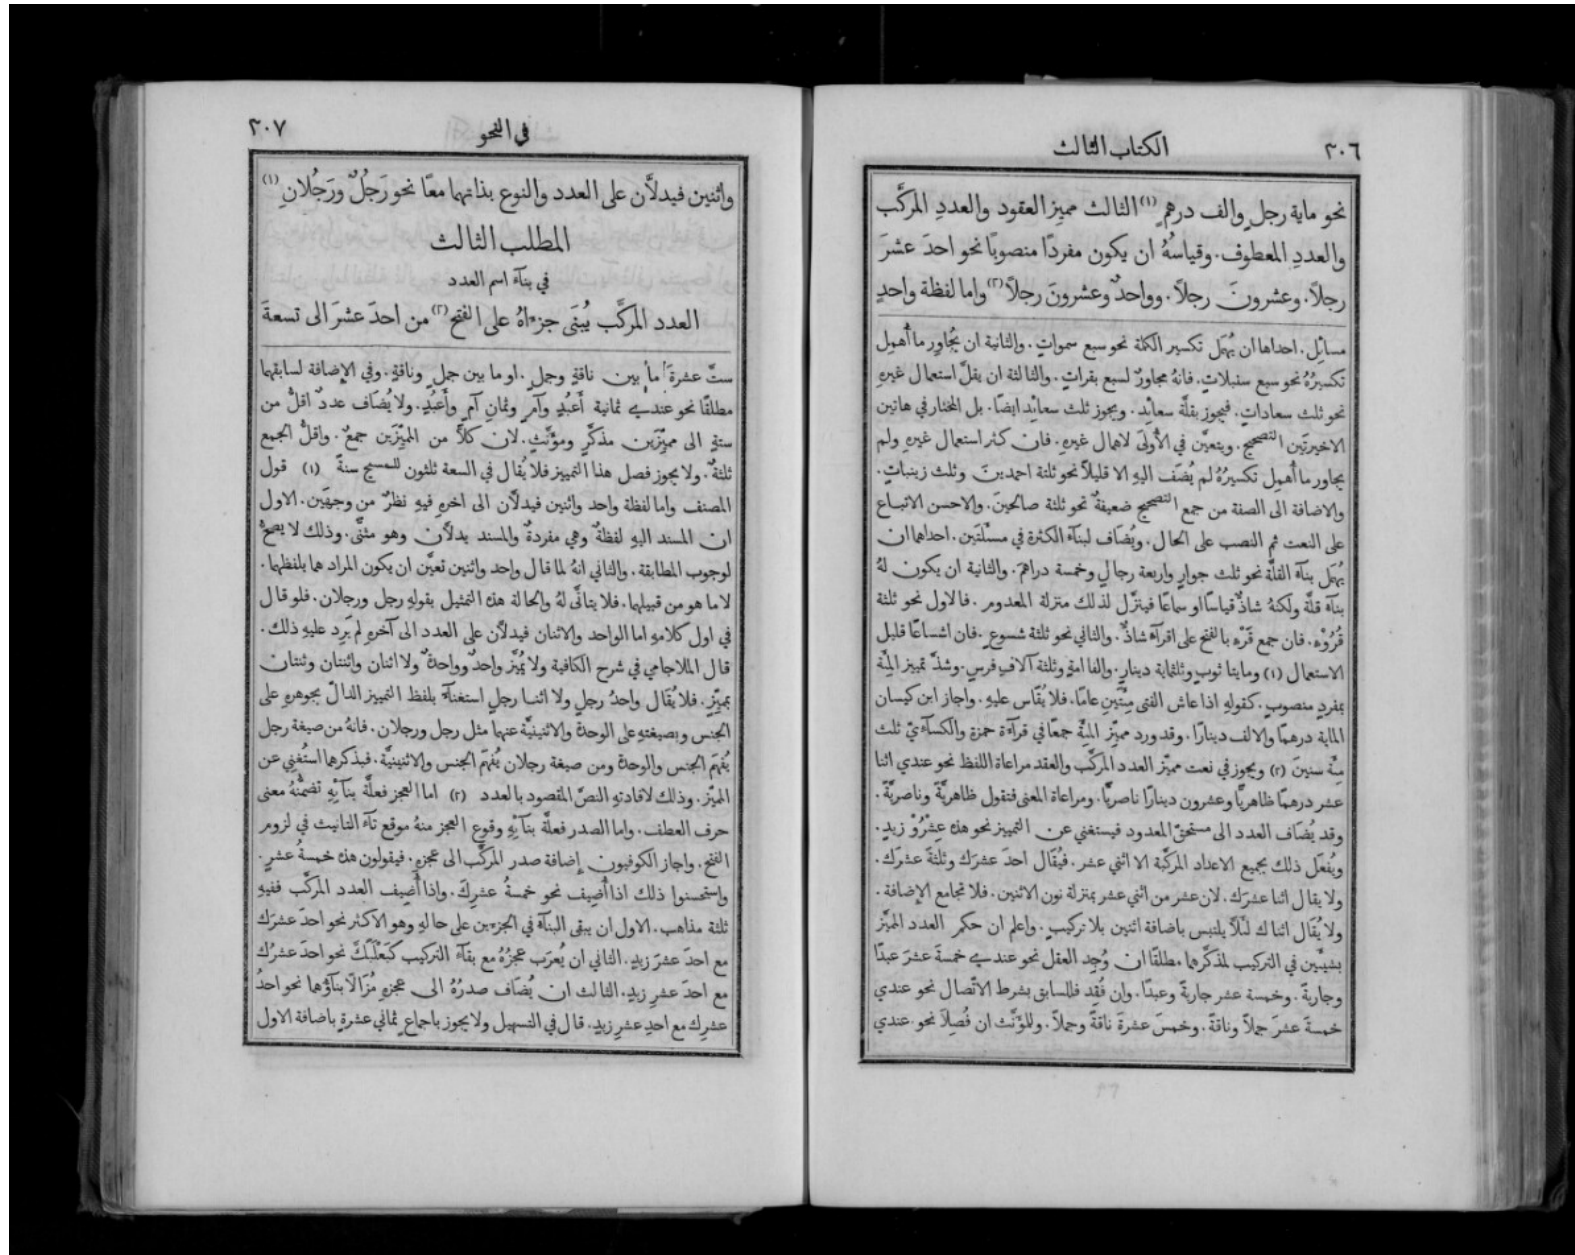 ٣٠٦ الكتاب الثالث
نحو ماية رجلٍ والف درهمٍ (١) الثالث مميز العقود والعددِ المركَّب
والعددِ المعطوف. وقياسُهُ ان يكون مفردًا منصوبًا نحو احدَ عشرَ
رجلًا. وعشرونَ رجلًا. وواحدٌ وعشرونَ رجلًا (٢) واما لفظة واحدٍ
مسائل. احداها ان يُهمَل تكسير الكلمة نحو سبع سمواتٍ. والثانية ان يُجاوِر ما أُهمِل
تكسيرُهُ نحو سبع سنبلاتٍ. فانهُ مجاورٌ لسبع بقراتٍ. والثالثة ان يقلَّ استعمال غيرهِ
نحو ثلث سعاداتٍ. فيجوز بقلَّة سعائد. ويجوز ثلث سعائد ايضًا. بل المختار في هاتين
الاخيرتَين التصحيح. ويتعيَّن في الأُولَى لاهمال غيرهِ. فان كثر استعمال غيرهِ ولم
يجاور ما أُهمِل تكسيرُهُ لم يُضَف اليهِ الا قليلًا نحو ثلثة احمدينَ وثلث زينباتٍ.
والاضافة الى الصفة من جمع التصحيح ضعيفةٌ نحو ثلثة صالحينَ. والاحسن الاتباع
على النعت ثم النصب على الحال. ويُضَاف لبنآء الكثرة في مسئلتَين. احداهما ان
يُهمَل بنآء القلَّة نحو ثلث جوارٍ واربعة رجالٍ وخمسة دراهمَ. والثانية ان يكون لهُ
بنآء قلَّة ولكنهُ شاذٌّ قياسًا او سماعًا فينزَّل لذلك منزلة المعدوم. فالاول نحو ثلثة
قُرُوْء. فان جمع قَرْء بالفتح على اقرآء شاذٌّ. والثاني نحو ثلثة شسوعٍ. فان اشساعًا قليل
الاستعمال (١) ومايتا ثوبٍ وثلثماية دينارٍ. والفا امةٍ وثلثة آلافِ فرسٍ. وشذَّ تمييز المِئَة
بمفردٍ منصوبٍ. كقولهِ اذا عاش الفتى مِئَتَينِ عامًا. فلا يُقَاس عليهِ. واجاز ابن كيسان
الماية درهمًا والالف دينارًا. وقد ورد مميِّز المِئَة جمعًا في قرآءة حمزة والكسآءيّ ثلث
مِئَة سنينَ (٢) ويجوز في نعت مميّز العدد المركَّب والعقد مراعاة اللفظ نحو عندي اثنا
عشر درهمًا ظاهريًّا وعشرون دينارًا ناصريًّا. ومراعاة المعنى فتقول ظاهريَّةً وناصريَّةً.
وقد يُضَاف العدد الى مستحقّ المعدود فيستغني عن التمييز نحو هذه عِشْرُوْ زيدٍ.
ويُفعَل ذلك بجميع الاعداد المركَّبة الا اثني عشر. فيُقَال احدَ عشرَك وثلثةَ عشرَك.
ولا يقال اثنا عشرَك. لان عشر من اثني عشر بمنزلة نون الاثنين. فلا تجامع الإضافة.
ولا يُقَال اثناك لئلَّا يلتبس باضافة اثنين بلا تركيبٍ. واعلم ان حكم العدد المميَّز
بشييَّين في التركيب لمذكَّرهما مطلقًا ان وُجِد العقل نحو عندي خمسةَ عشرَ عبدًا
وجاريةً. وخمسة عشر جاريةً وعبدًا. وان فُقِد فللسابق بشرط الاتّصال نحو عندي
خمسةَ عشرَ جملًا وناقةً. وخمسَ عشرةَ ناقةً وجملًا. وللمؤنَّث ان فُصِلَا نحو عندي
في النحو ٣٠٧
واثنين فيدلَّان على العدد والنوع بذاتهما معًا نحو رَجُلٌ ورَجُلانِ (١)
المطلب الثالث
في بنآء اسم العدد
العدد المركَّب يُبنَى جزءاهُ على الفتح (٢) من احدَ عشرَ الى تسعةَ
ستَّ عشرةَ ما بين ناقةٍ وجملٍ. او ما بين جملٍ وناقةٍ. وفي الإضافة لسابقهما
مطلقًا نحو عندي ثمانية أَعبُدٍ وآمٍ وثمانِ آمٍ وأَعبُدٍ. ولا يُضَاف عددٌ اقلُّ من
ستةٍ الى مميِّزَين مذكَّرٍ ومؤنَّثٍ. لان كلًّا من المميِّزَين جمعٌ. واقلُّ الجمع
ثلثةٌ. ولا يجوز فصل هذا التمييز فلا يُقال في السعة ثلثون للمسيح سنةً (١) قول
المصنف واما لفظة واحد واثنين فيدلَّان الى اخرهِ فيهِ نظرٌ من وجهَين. الاول
ان المسند اليهِ لفظةٌ وهي مفردةٌ والمسند يدلَّان وهو مثنًّى. وذلك لا يصحُّ
لوجوب المطابقة. والثاني انهُ لما قال واحد واثنين تعيَّن ان يكون المراد هما بلفظهما.
لا ما هو من قبيلهما. فلا يتأتَّى لهُ والحالة هذه التمثيل بقولهِ رجل ورجلان. فلو قال
في اول كلامهِ اما الواحد والاثنان فيدلَّان على العدد الى آخرهِ لم يَرِد عليهِ ذلك.
قال الملاجامي في شرح الكافية ولا يُميَّز واحدٌ وواحدةٌ ولا اثنان واثنتان وثنتان
بمميِّزٍ. فلا يُقَال واحدُ رجلٍ ولا اثنا رجلٍ استغنآءً بلفظ التمييز الدالّ بجوهرهِ على
الجنس وبصيغتهِ على الوحدة والاثنينيَّة عنهما مثل رجل ورجلان. فانهُ من صيغة رجل
يُفهَم الجنس والوحدة ومن صيغة رجلان يُفهَم الجنس والاثنينيَّة. فبذكرهما استُغنِي عن
المميّز. وذلك لافادتهِ النصَّ المقصود بالعدد (٢) اما العجز فعلَّة بنآئهِ تضمُّنهُ معنى
حرف العطف. واما الصدر فعلَّة بنآئهِ وقوع العجز منهُ موقع تآء التانيث في لزوم
الفتح. واجاز الكوفيون إضافة صدر المركَّب الى عجزهِ. فيقولون هذه خمسةُ عشرٍ.
واستحسنوا ذلك اذا أُضِيف نحو خمسةُ عشرِكَ. واذا أُضِيف العدد المركَّب ففيهِ
ثلثة مذاهب. الاول ان يبقى البنآء في الجزءين على حالهِ وهو الاكثر نحو احدَ عشرَك
مع احدَ عشرَ زيدٍ. الثاني ان يُعرَب عجزُهُ مع بقآء التركيب كبَعْلَبَكَّ نحو احدَ عشرُك
مع احدَ عشرِ زيدٍ. الثالث ان يُضَاف صدرُهُ الى عجزهِ مُزَالًا بناؤهما نحو احدُ
عشرِك مع احدِ عشرِ زيدٍ. قال في التسهيل ولا يجوز باجماعٍ ثماني عشرةٍ باضافة الاول